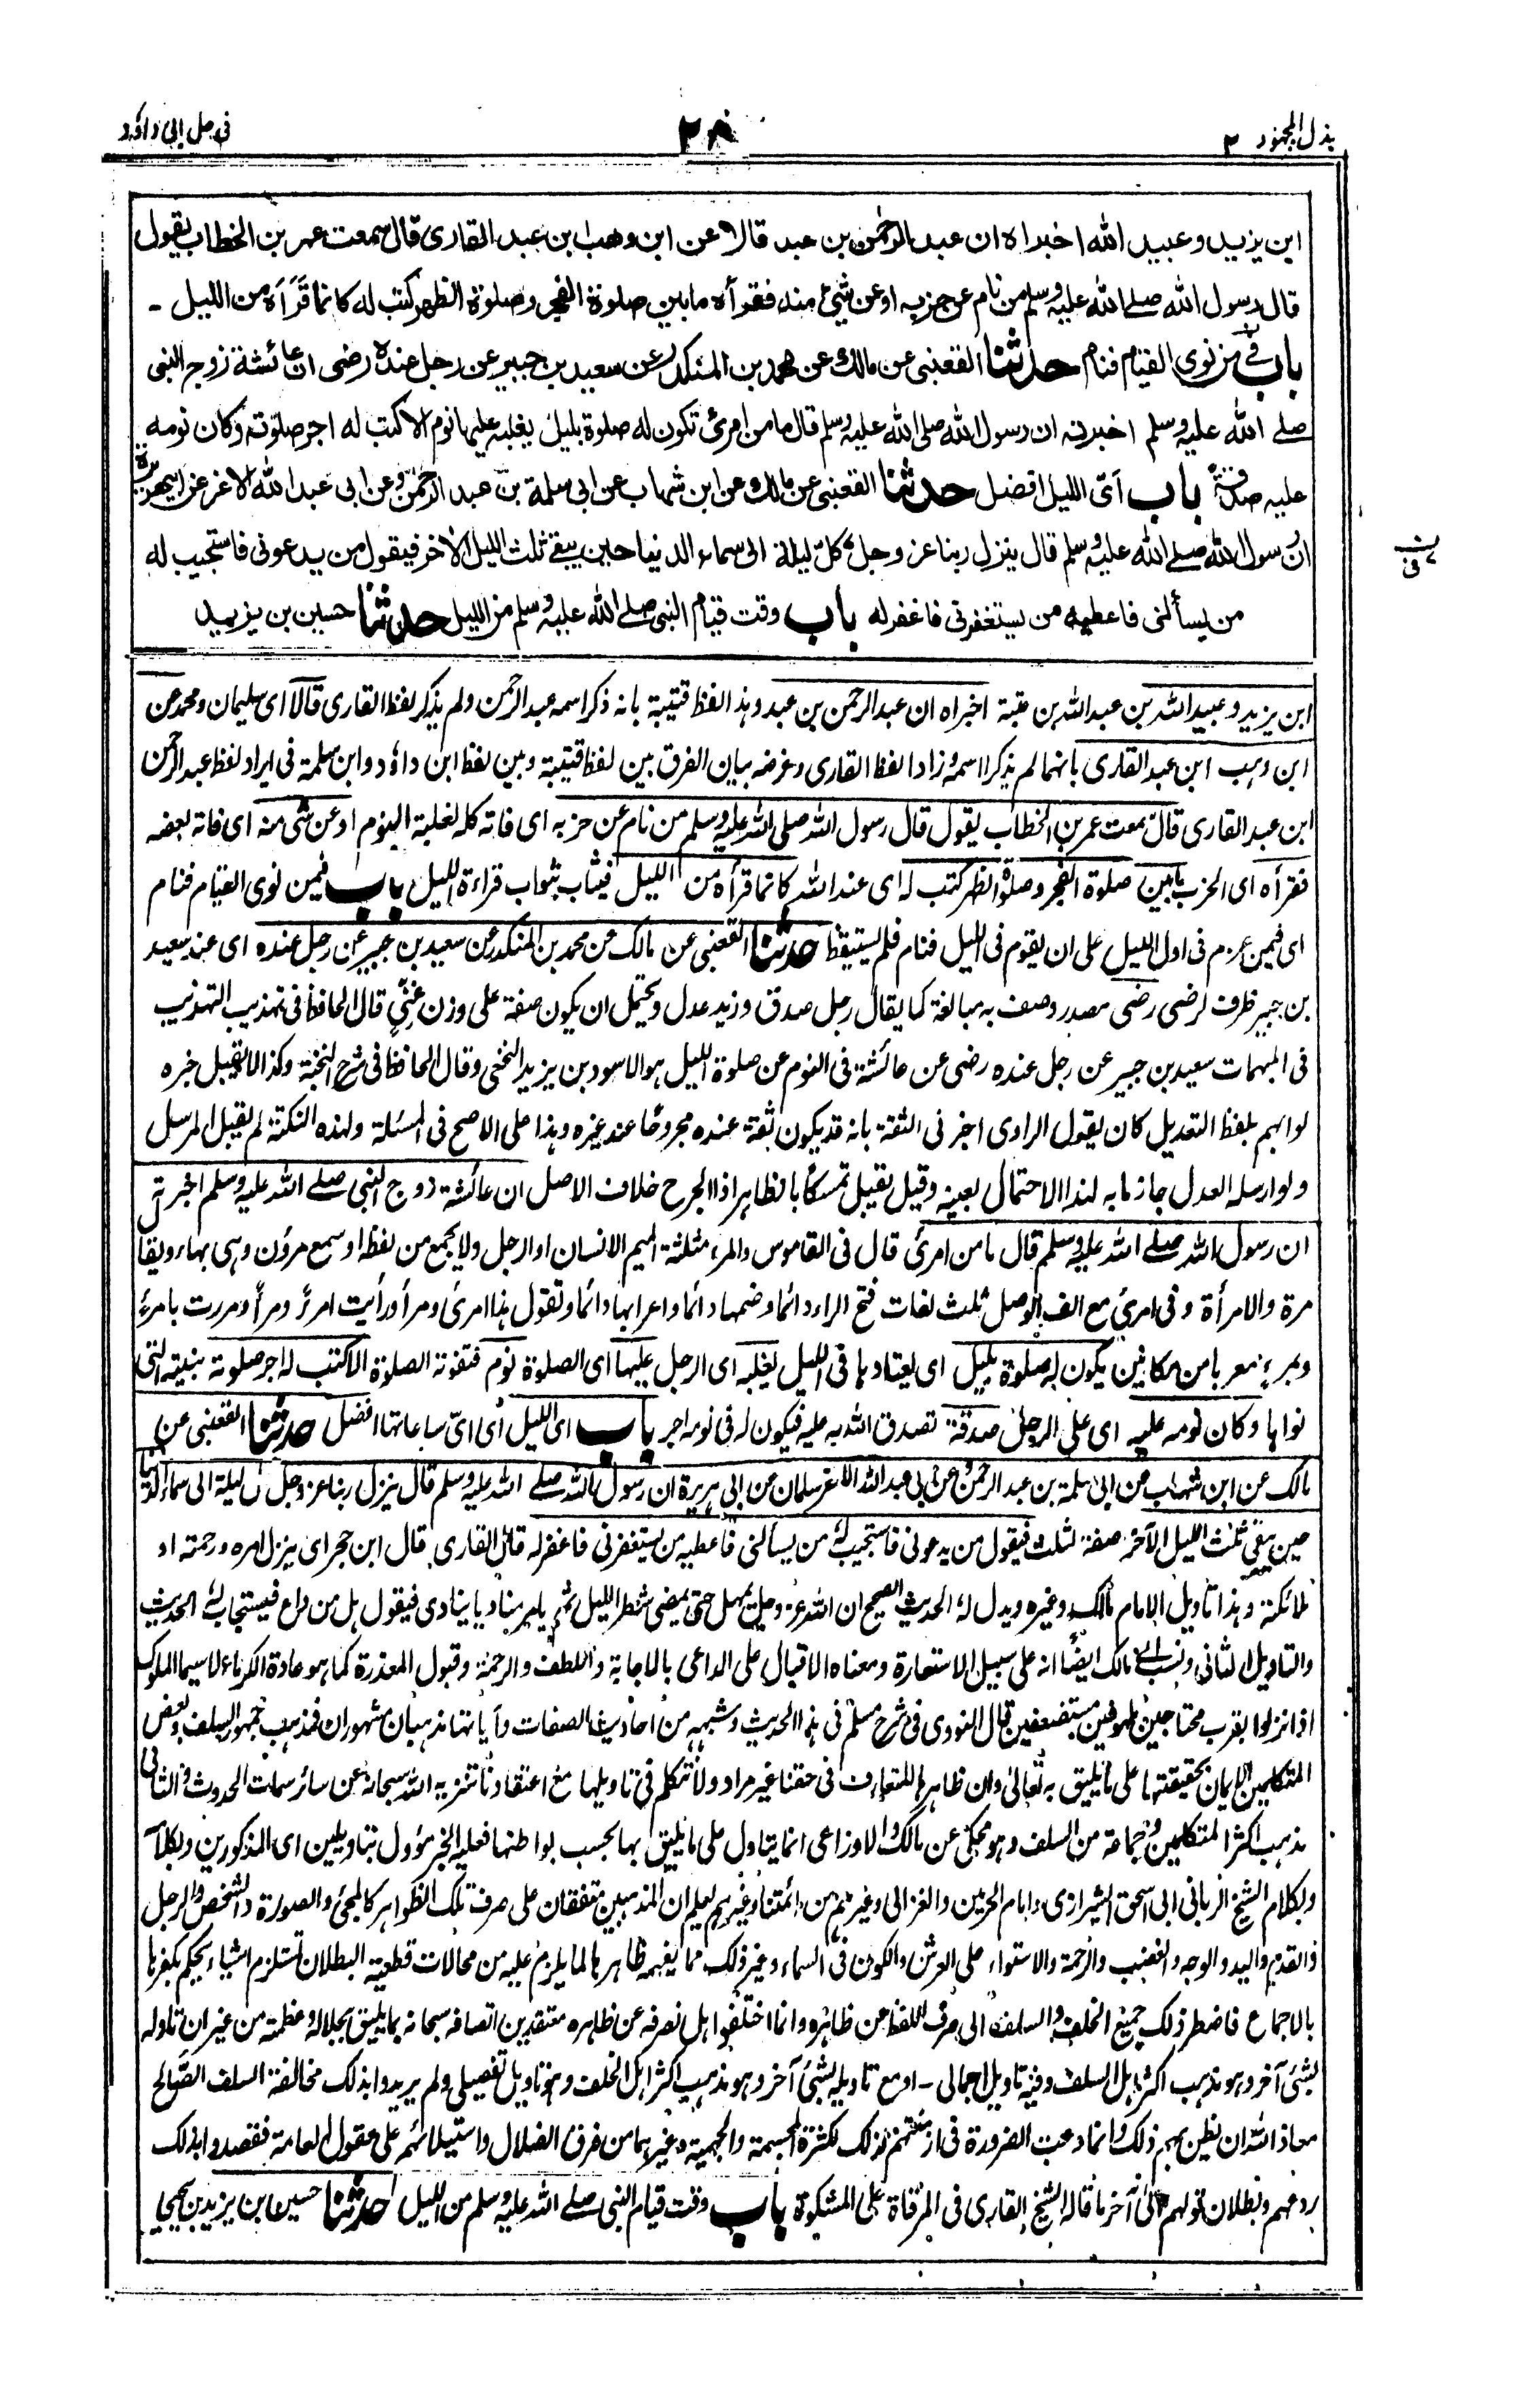 بذل المجهود ٢
٢٨
في حل ابي داؤد
ابن يزيد وعبيد الله اخبراه ان عبد الرحمن بن عبد قالا عن ابن وهب ابن عبد القاري قال سمعت عمر بن الخطاب يقول
قال رسول الله صلى الله عليه وسلم من نام عن حزبه او عن شئ منه فقرأه ما بين صلوة الفجر وصلوة الظهر كتب له كانما قرأه من الليل -
باب في من نوى القيام فنام حدثنا القعنبي عن مالك عن محمد بن المنكدر عن سعيد بن جبير عن رجل عنده رضى ان عائشة زوج النبي
صلے الله عليه وسلم اخبرته ان رسول الله صلى الله عليه وسلم قال ما من امرئ تكون له صلوة بليل يغلبه عليها نوم الا كتب له اجر صلوته وكان نومه
عليه صدقة باب اى الليل افضل حدثنا القعنبي عن مالك عن ابن شهاب عن ابي سلمة بن عبد الرحمن وعن ابي عبد الله الاغر عن ابي هريرة
ان رسول الله صلے الله عليه وسلم قال ينزل ربنا عز وجل كل ليلة الى سماء الدنيا حين يبقے ثلث الليل الآخر فيقول من يدعوني فاستجيب له
من يسألني فاعطيه من يستغفرني فاغفر له باب وقت قيام النبي صلے الله عليه وسلم من الليل حدثنا حسين بن يزيد
ابن يزيد وعبيد الله بن عبد الله بن عتبة اخبراه ان عبد الرحمن بن عبد وهذا لفظ قتيبة بانه ذكر اسمه عبد الرحمن ولم يذكر لفظ القاري قالا اى سليمان ومحمد عن
ابن وهب ابن عبد القاري بانهما لم يذكرا اسمه وزادا لفظ القاري وغرضه بيان الفرق بين لفظ قتيبة وبين لفظ ابن داؤد وابن سلمة في ايراد لفظ عبد الرحمن
ابن عبد القاري قال سمعت عمر بن الخطاب يقول قال رسول الله صلى الله عليه وسلم من نام عن حزبه اى فاته كله لغلبة النوم او عن شئ منه اى فاته بعضه
فقرأه اى الحزب ما بين صلوة الفجر وصلوة الظهر كتب له اى عند الله كانما قرأه من الليل فيثاب بثواب قراءة الليل باب فيمن نوى القيام فنام
اى فيمن عزم في اول الليل على ان يقوم في الليل فنام فلم يستيقظ حدثنا القعنبي عن مالك عن محمد بن المنكدر عن سعيد بن جبير عن رجل عنده اى عند سعيد
بن جبير ظرف لرضى رضى مصدر وصف به مبالغة كما يقال رجل صدق وزيد عدل ويحتمل ان يكون صفة على وزن غني قال الحافظ في تهذيب التهذيب
في المبهمات سعيد بن جبير عن رجل عنده رضى عن عائشة في النوم عن صلوة الليل هو الاسود بن يزيد النخعي وقال الحافظ في شرح النخبة وكذا لا يقبل خبره
لو ابهم بلفظ التعديل كان يقول الراوي اخبرني الثقة بانه قد يكون ثقة عنده مجروحا عند غيره وهذا على الاصح في المسئلة ولهذه النكتة لم يقبل المرسل
ولو ارسله العدل جازما به لهذا الاحتمال بعينه وقيل يقبل تمسكا بالظاهر اذ الجرح خلاف الاصل ان عائشة زوج النبي صلے الله عليه وسلم اخبرته
ان رسول الله صلے الله عليه وسلم قال ما من امرئ قال في القاموس والمرء مثلثة الميم الانسان او الرجل ولا يجمع من لفظه او سمع مرؤن وهي بهاء ويقال
مرة والامرأة وفي امرئ مع الف الوصل ثلث لغات فتح الراء دائما وضمها دائما واعرابها دائما وتقول هذا امرؤ ومرء ورأيت امرءً ومرءً ومررت بامرءٍ
وبمرءٍ معربا من مكانين يكون له صلوة بليل اى يعتادها في الليل يغلبه اى الرجل عليها اى الصلوة نوم فتفوته الصلوة الا كتب له اجر صلوته بنيته التي
نواها وكان نومه عليه اى على الرجل صدقة تصدق الله به عليه فيكون له في نومه اجر باب اى الليل اى اىّ ساعاتها افضل حدثنا القعنبي عن
مالك عن ابن شهاب عن ابي سلمة بن عبد الرحمن وعن ابي عبد الله الاغر سلمان عن ابي هريرة ان رسول الله صلے الله عليه وسلم قال ينزل ربنا عز وجل كل ليلة الى سماء الدنيا
حين يبقى ثلث الليل الآخر صفة لثلث فيقول من يدعوني فاستجيب له من يسألني فاعطيه من يستغفرني فاغفر له قال القاري قال ابن حجر اى ينزل امره ورحمته او
ملائكته وهذا تاويل الامام مالك وغيره ويدل له الحديث الصحيح ان الله عز وجل يمهل حتى يمضى شطر الليل ثم يأمر مناديا ينادى فيقول هل من داع فيستجاب له الحديث
والتاويل الثاني ونسب الى مالك ايضا انه على سبيل الاستعارة ومعناه الاقبال على الداعي بالاجابة واللطف والرحمة وقبول المعذرة كما هو عادة الكرماء لا سيما الملوك
اذا نزلوا بقرب محتاجين ملهوفين مستضعفين قال النووي في شرح مسلم في هذا الحديث وشبهه من احاديث الصفات وآياتها مذهبان مشهوران فمذهب جمهور السلف وبعض
المتكلمين الايمان بحقيقتها على ما يليق به تعالى وان ظاهرها المتعارف في حقنا غير مراد ولا نتكلم في تاويلها مع اعتقادنا تنزيه الله سبحانه عن سائر سمات الحدوث والثاني
مذهب اكثر المتكلمين وجماعة من السلف وهو محكي عن مالك والاوزاعي انما يتاول على ما يليق بها بحسب بواطنها فعليه الخبر مؤول بتاويلين اى المذكورين وبكلامه
وبكلام الشيخ الرباني ابي اسحق الشيرازي وامام الحرمين والغزالي وغيرهم من ائمتنا وغيرهم يعلم ان المذهبين متفقان على صرف تلك الظواهر كالمجئ والصورة والشخص والرجل
والقدم واليد والوجه والغضب والرحمة والاستواء على العرش والكون في السماء وغير ذلك مما يفهمه ظاهرها لما يلزم عليه من محالات قطعية البطلان تستلزم اشياء يحكم بكفرها
بالاجماع فاضطر ذلك جميع الخلف والسلف الى صرف اللفظ عن ظاهره وانما اختلفوا هل نصرفه عن ظاهره معتقدين اتصافه سبحانه بما يليق بجلاله وعظمته من غير ان نأوله
بشئ آخر وهو مذهب اكثر اهل السلف وفيه تاويل اجمالي - او مع تاويله بشئ آخر وهو مذهب اكثر اهل الخلف وهو تاويل تفصيلي ولم يريدوا بذلك مخالفة السلف الصالح
معاذ الله ان نظن بهم ذلك وانما دعت الضرورة في ازمنتهم لذلك لكثرة المجسمة والجهمية وغيرهما من فرق الضلال واستيلائهم على عقول العامة فقصدوا بذلك
ردعهم وبطلان قولهم الى آخر ما قاله الشيخ القاري في المرقاة على المشكوة باب وقت قيام النبي صلے الله عليه وسلم من الليل حدثنا حسين بن يزيد بن يحيى